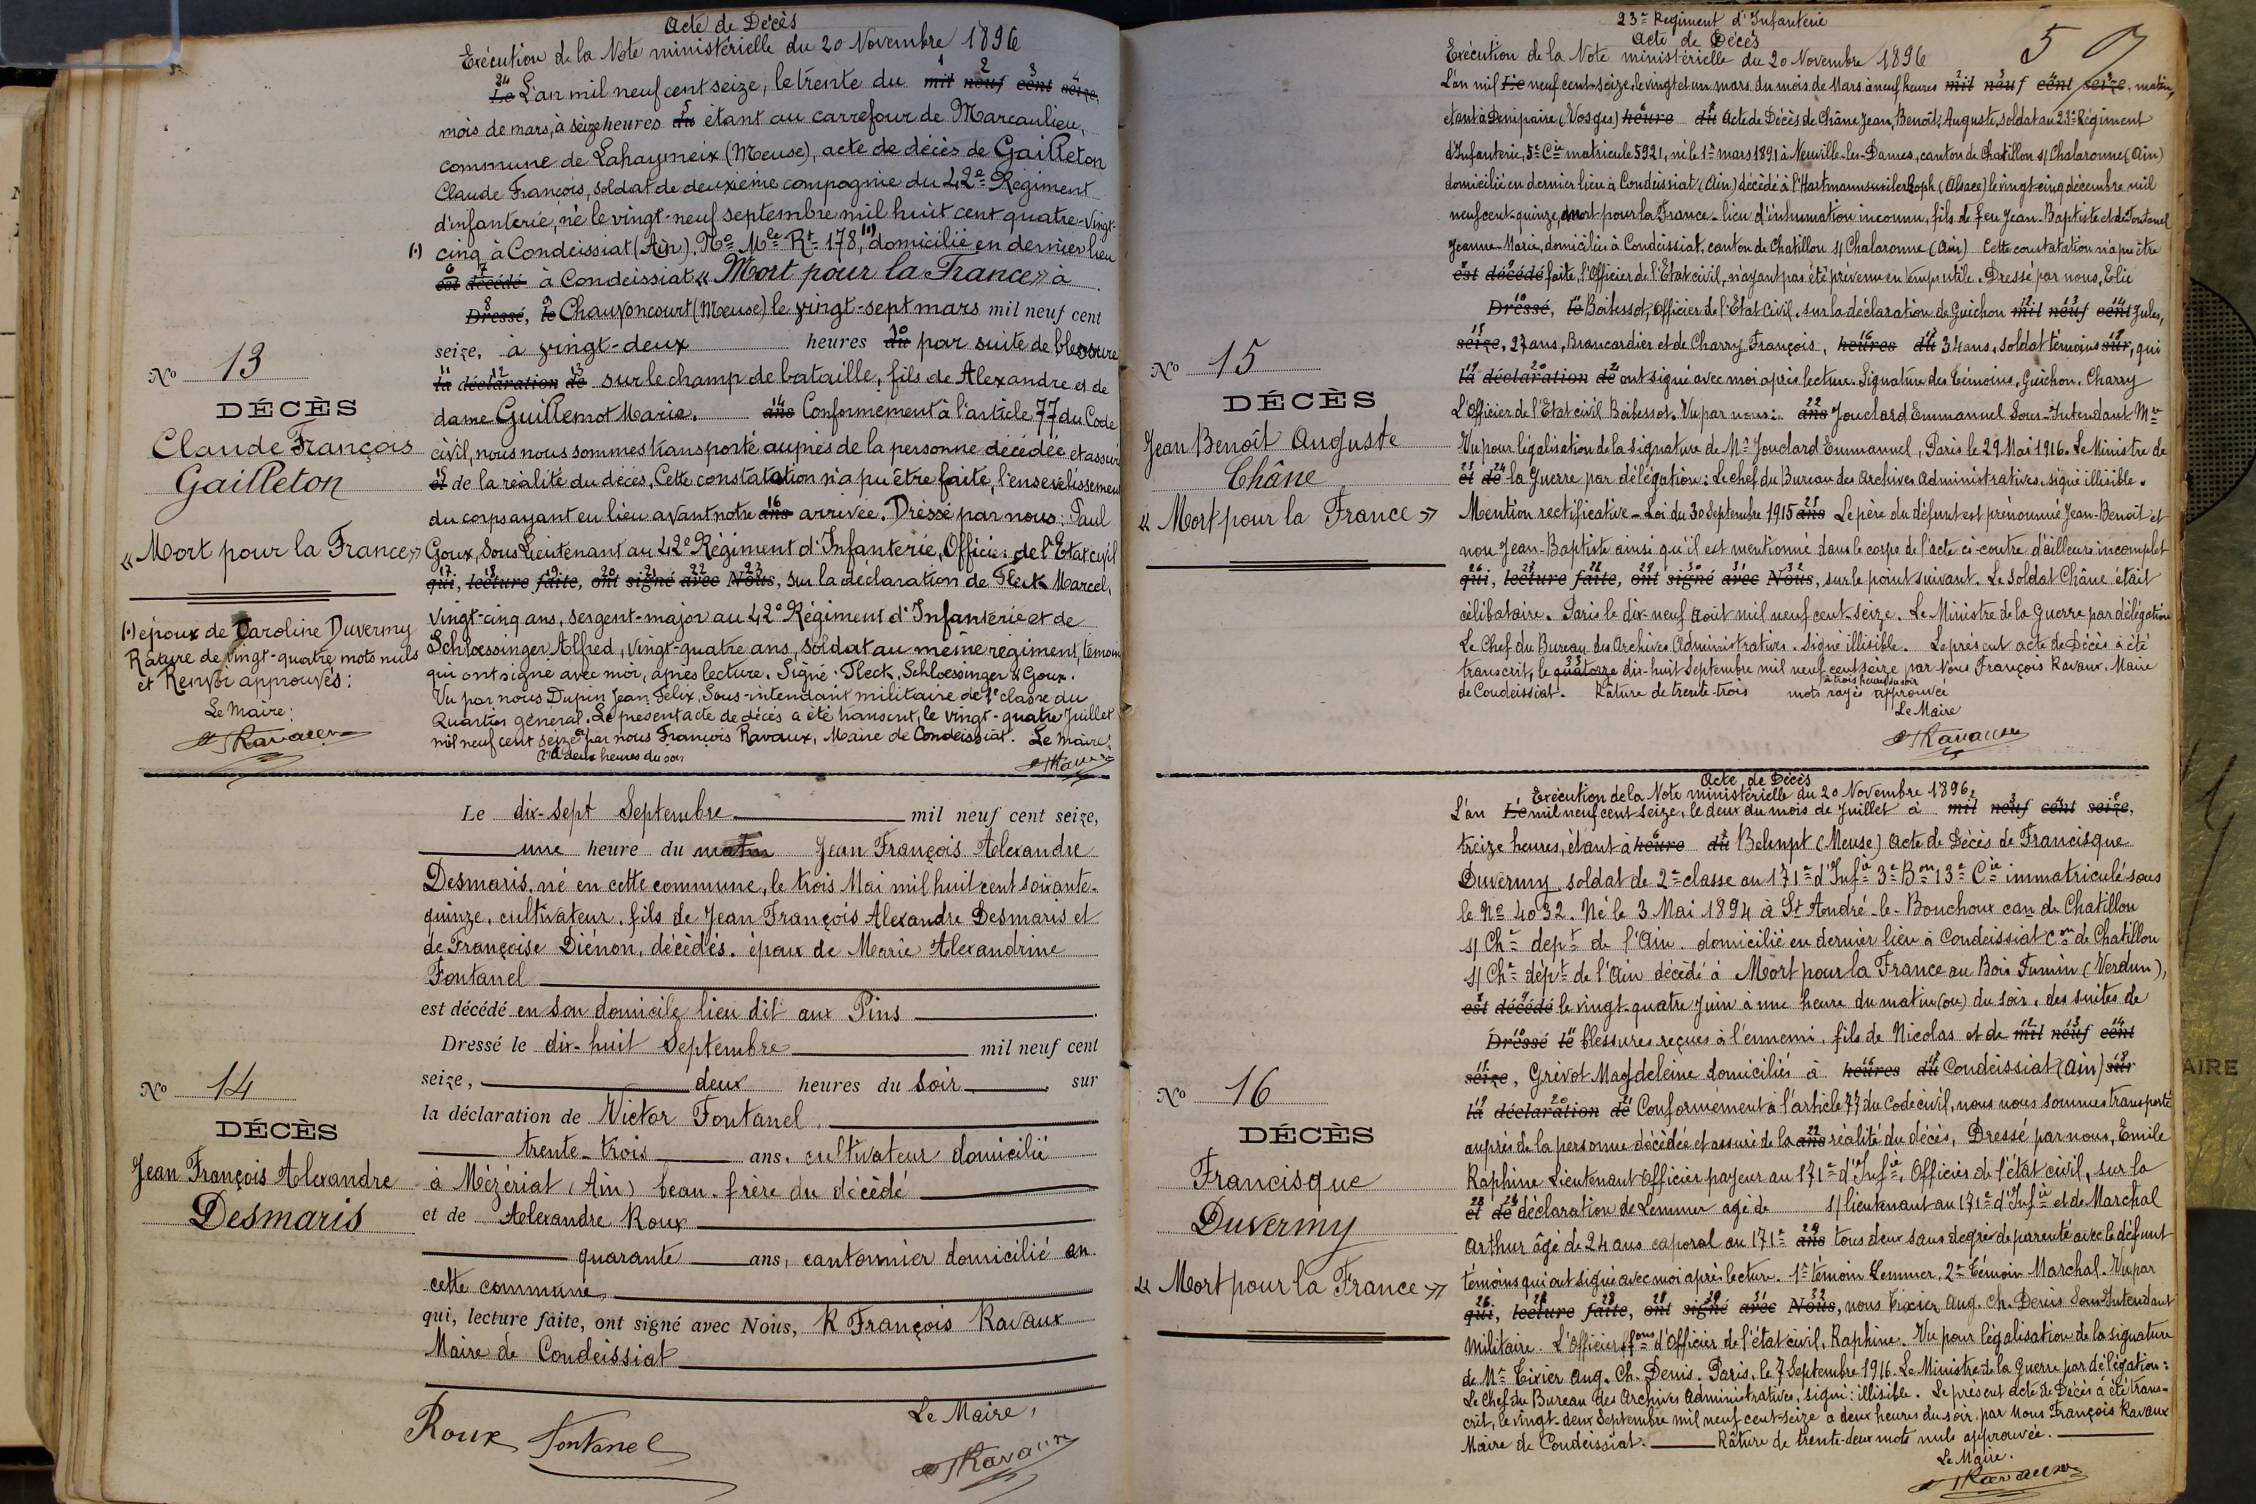 Acte de Décès
Exécution de la Note ministérielle du 20 Novembre 1896
Le L'an mil neuf cent seize, le trente du mil neuf cent seize,
mois de mars, à seize heures du étant au carrefour de Marcaulieu,
commune de Lahaymeix (Meuse), acte de décès de Gailleton
Claude François, soldat de deuxième compagnie du 42e Régiment
d'infanterie, né le vingt-neuf septembre mil huit cent quatre-vingt-
(.) cinq à Condeissiat (Ain). No Mle Rt 178, (.) domicilié en dernier lieu
est décédé à Condeissiat « Mort pour la France » à
Dressé, le Chauvoncourt (Meuse) le vingt-sept mars mil neuf cent
seize, à vingt-deux heures du par suite de blessure
la déclaration de sur le champ de bataille, fils de Alexandre et de
dame Guillemot Marie. ans Conformément à l'article 77 du Code
civil, nous nous sommes transporté auprès de la personne décédée et assuré
et de la réalité du décès. Cette constatation n'a pu être faite, l'ensevelissement
du corps ayant eu lieu avant notre ans arrivée. Dressé par nous: Paul
Goux, Sous Lieutenant au 42e Régiment d'Infanterie, Officier de l'Etat civil
qui, lecture faite, ont signé avec Nous, sur la déclaration de Fleck Marcel,
vingt-cinq ans, sergent-major au 42e Régiment d'Infanterie et de
Schlœssinger Alfred, vingt-quatre ans, soldat au même régiment, témoins
qui ont signé avec moi, après lecture. Signé: Fleck, Schlœssinger & Goux.
Vu par nous Dupin Jean Félix, Sous-intendant militaire de 1e classe du
Quartier général. Le présent acte de décès a été transcrit, le vingt-quatre Juillet
mil neuf cent seize par nous François Ravaux, Maire de Condeissiat. Le Maire:
à deux heures du soir
No 13
DÉCÈS
Claude François
Gailleton
« Mort pour la France »
(.) époux de Caroline Duvermy
Râture de vingt-quatre mots nuls
et Renvoi approuvés:
Le Maire:
Ravaux
Le dix-sept Septembre mil neuf cent seize,
une heure du matin Jean François Alexandre
Desmaris, né en cette commune, le trois Mai mil huit cent soixante-
quinze, cultivateur, fils de Jean François Alexandre Desmaris et
de Françoise Diénon, décédés. époux de Marie Alexandrine
Fontanel
est décédé en son domicile lieu dit aux Pins
Dressé le dix-huit Septembre mil neuf cent
seize, deux heures du Soir, sur
la déclaration de Victor Fontanel
trente-trois ans, cultivateur domicilié
à Mézériat (Ain) beau-frère du décédé
et de Alexandre Roux
quarante ans, cantonnier domicilié en
cette commune,
qui, lecture faite, ont signé avec Nous, R François Ravaux
Maire de Condeissiat
Le Maire,
Roux Fontanel Ravaux
No 14
DÉCÈS
Jean François Alexandre
Desmaris
23e Régiment d'Infanterie
Acte de Décès
Exécution de la Note ministérielle du 20 Novembre 1896
5
L'an mil Le neuf cent-seize, le vingt et un mars du mois de Mars à neuf heures mil neuf cent seize, matin,
étant à Denipaire (Vosges) heure du Acte de Décès de Châne Jean, Benoît, Auguste, soldat au 23e Régiment
d'Infanterie, 5e Cie matricule 5921, né le 1er mars 1891 à Neuville-les-Dames, canton de Chatillon s/ Chalaronne (Ain)
domicilié en dernier lieu à Condeissiat (Ain) décédé à l'Hartmannswilerkoph (Alsace) le vingt-cinq décembre mil
neuf cent-quinze, mort pour la France - lieu d'inhumation inconnu, fils de feu Jean-Baptiste et de Fontanel
Jeanne-Marie, domiciliée à Condeissiat, canton de Chatillon s/ Chalaronne (Ain) Cette constatation n'a pu être
est décédé faite, l'Officier de l'Etat civil, n'ayant pas été prévenu en temps utile. Dressé par nous, Elie
Dressé, le Boibessot, Officier de l'Etat Civil, sur la déclaration de Guichon mil neuf cent Jules,
seize, 27 ans, Brancardier et de Charry François, heures du 34 ans, soldat témoins sur, qui
la déclaration de ont signé avec moi après lecture. Signature des Témoins, Guichon, Charry
L'Officier de l'Etat civil Boibessot. Vu par nous: ans Jouclard Emmanuel Sous-Intendant Mre
Vu pour légalisation de la signature de Mr Jouclard Emmanuel, Paris le 29 Mai 1916. Le Ministre de
et de la Guerre par délégation: Le chef du Bureau des Archives Administratives, signé illisible.
Mention rectificative - Loi du 30 Septembre 1915 ans Le père du défunt est prénommé Jean-Benoît et
non Jean-Baptiste ainsi qu'il est mentionné dans le corps de l'acte ci-contre d'ailleurs incomplet
qui, lecture faite, ont signé avec Nous, sur le point suivant. Le soldat Châne était
célibataire. Paris le dix-neuf Août mil neuf cent-seize. Le Ministre de la Guerre par délégation
Le Chef du Bureau des Archives Administratives. Signé illisible. Le présent acte de Décès a été
transcrit, le quatorze dix-huit Septembre mil neuf cent seize par Nous François Ravaux Maire
à trois heures du soir
de Condeissiat. Râture de trente-trois mots rayés approuvée
Le Maire
Ravaux
No 15
DÉCÈS
Jean Benoît Auguste
Châne
« Mort pour la France »
Acte de Décès
Exécution de la Note ministérielle du 20 Novembre 1896.
L'an Le mil neuf cent seize, le deux du mois de Juillet à mil neuf cent seize,
treize heures, étant à heure du Belrupt (Meuse) Acte de Décès de Francisque
Duvermy soldat de 2e classe au 171e d'Infie 3e Bon 13e Cie immatriculé sous
le No 4032. Né le 3 Mai 1894 à St André-le-Bouchoux can de Chatillon
s/ Che dept de l'Ain. domicilié en dernier lieu à Condeissiat Con de Chatillon
s/ Che dépt de l'Ain décédé à Mort pour la France au Bois Fumin (Verdun),
est décédé le vingt-quatre Juin à une heure du matin (ou) du soir, des suites de
Dressé le blessures reçues à l'ennemi, fils de Nicolas et de mil neuf cent
seize, Grévot Magdeleine domiciliés à heures du Condeissiat (Ain) sur
la déclaration de Conformément à l'article 77 du Code civil, nous nous sommes transporté
auprès de la personne décédée et assuré de la ans réalité du décès, Dressé par nous, Emile
Raphine Lieutenant Officier payeur au 171e d'Infie, Officier de l'état civil, sur la
et de déclaration de Lemmer agé de s/ lieutenant au 171e d'Infie et de Marchal
Arthur âgé de 24 ans caporal au 171e ans tous deux sans degré de parenté avec le défunt
témoins qui ont signé avec moi après lecture. 1er témoin Lemmer, 2e Témoin Marchal. Vu par
qui, lecture faite, ont signé avec Nous, nous Tixier Aug. Ch. Denis Sous-Intendant
Militaire. L'Officier ffons d'Officier de l'état civil, Raphine. Vu pour légalisation de la signature
de Mr Tixier Aug. Ch. Denis. Paris, le 7 Septembre 1916. Le Ministre de la Guerre par délégation:
Le Chef du Bureau des Archives Administratives, signé: illisible. Le présent acte de Décès a été trans-
crit, le vingt-deux Septembre mil neuf cent-seize à deux heures du soir, par Nous François Ravaux
Maire de Condeissiat. Râture de trente-deux mots nuls approuvée.
Le Maire.
Ravaux
No 16
DÉCÈS
Francisque
Duvermy
« Mort pour la France »
AIRE